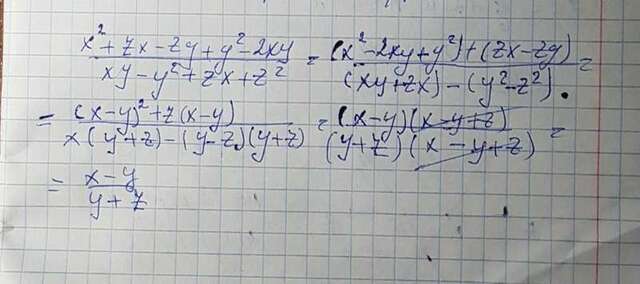 x² + zx - zy + y² - 2xy / xy - y² + zx + z² = (x² - 2xy + y²) + (zx - zy) / (xy + zx) - (y² - z²) =
= (x - y)² + z(x - y) / x(y + z) - (y - z)(y + z) = (x - y)(x - y + z) / (y + z)(x - y + z) =
= x - y / y + z